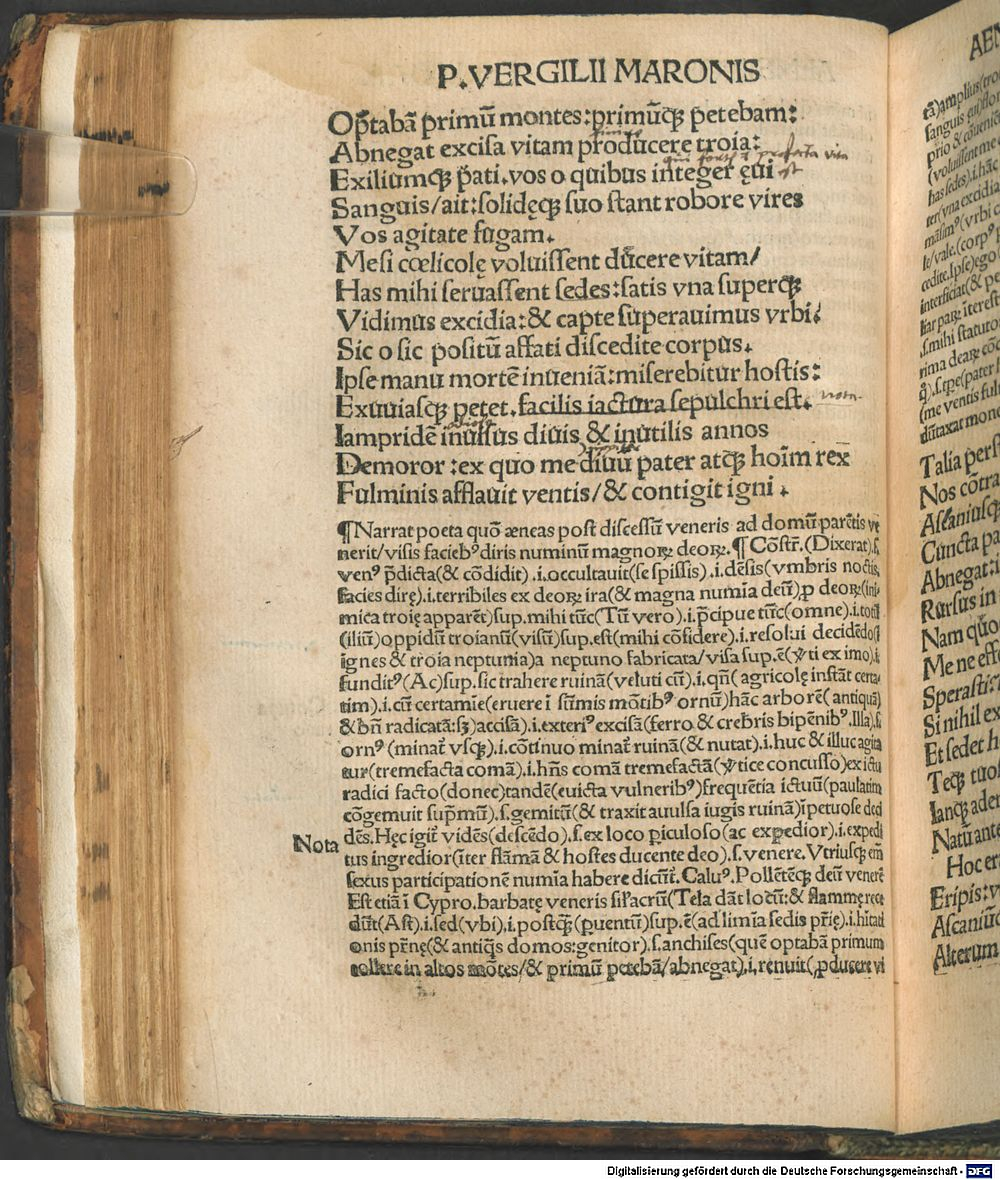 P. VERGILII MARONIS
Optabā primū montes: primūqꝫ petebam:
Abnegat excisa vitam producere troia:
Exiliumqꝫ p̄ati. vos o quibus integer ęui
Sanguis/ait: solidęqꝫ suo stant robore vires
Vos agitate fugam.
Me si cœlicolę voluissent ducere vitam/
Has mihi seruassent sedes: satis vna superqꝫ
Vidimus excidia: & capte superauimus vrbi.
Sic o sic positū affati discedite corpus.
Ipse manu mortē inueniā: miserebitur hostis:
Exuuiasqꝫ petet. facilis iactura sepulchri est.
nota
Iampridē inuisus diuis & inutilis annos
Demoror: ex quo me diuū pater atqꝫ hoīm rex
Fulminis afflauit ventis/& contigit igni.
¶ Narrat poeta quō æneas post discessū veneris ad domū parētis ve
nerit/visis facieb⁹ diris numinū magnoꝝ deoꝝ. ¶ Cōstr̄. (Dixerat).s.
ven⁹ p̄dicta(& cōdidit).i.occultauit(se spissis).i.dēsis(vmbris noctis,
facies dirę).i.terribiles ex deoꝝ ira(& magna numīa deū)ꝓ deoꝝ(ini
mica troię apparēt)sup.mihi tūc(Tū vero).i.p̄cipue tūc(omne).i.totū
(iliū)oppidū troianū(visū)sup.est(mihi cōsidere).i.resolui decidēdo(ī
ignes & troia neptunia)a neptuno fabricata/visa sup.ē(v̄ti ex imo).i.
fundit⁹(Ac)sup.sic trahere ruinā(veluti cū).i.qn̄(agricolę instāt certa
tim).i.cū certamīe(eruere ī sūmis mōtib⁹ ornū)hāc arborē(antiquā)
& bn̄ radicatā:sꝫ)accisā).i.exteri⁹ excisā(ferro & crebris bipēnib⁹. Illa).s.
orn⁹(minat̄ vsqꝫ).i.cōtinuo minat̄ ruinā(& nutat).i.huc & illuc agita
tur(tremefacta comā).i.hn̄s comā tremefactā(v̄tice concusso)ex ictu
radici facto(donec)tandē(euicta vulnerib⁹)frequētia ictuū(paulatim
cōgemuit sup̄mū).s.gemitū(& traxit auulsa iugis ruinā)īpetuose deci
dēs. Hęc igit̄ vidēs(descēdo).s.ex loco ꝑiculoso(ac expedior).i.expedi
Nota
tus ingredior(iter flāmā & hostes ducente deo).s.venere. Vtriusqꝫ em̄
sexus participationē numīa habere dicūt̄. Calu⁹. Pollētēqꝫ deū venerē
Est etiā ī Cypro. barbatę veneris sil̄acrū(Tela dāt locū: & flammę rece
dūt(Ast).i.sed(vbi).i.postqꝫ(ꝑuentū)sup.ē(ad limīa sedis pr̄ię).i.hītati
onis pr̄nę(& antiq̄s domos: genitor).s.anchises(quē optabā primum
tollere in altos mōtes/& primū petebā/abnegat).i.renuit(ꝓducere vi
AEN
Talia pers
Nos cōtra
Ascaniusqꝫ
Cuncta pa
Abnegat: i
Rursus in
Nam quo
Me ne effe
Sperasti:
Si nihil ex
Et sedet h
Teqꝫ tuo
Ianqꝫ ade
Natū ante
Hoc er
Eripis: v
Ascaniū
Alterum
Digitalisierung gefördert durch die Deutsche Forschungsgemeinschaft - DFG